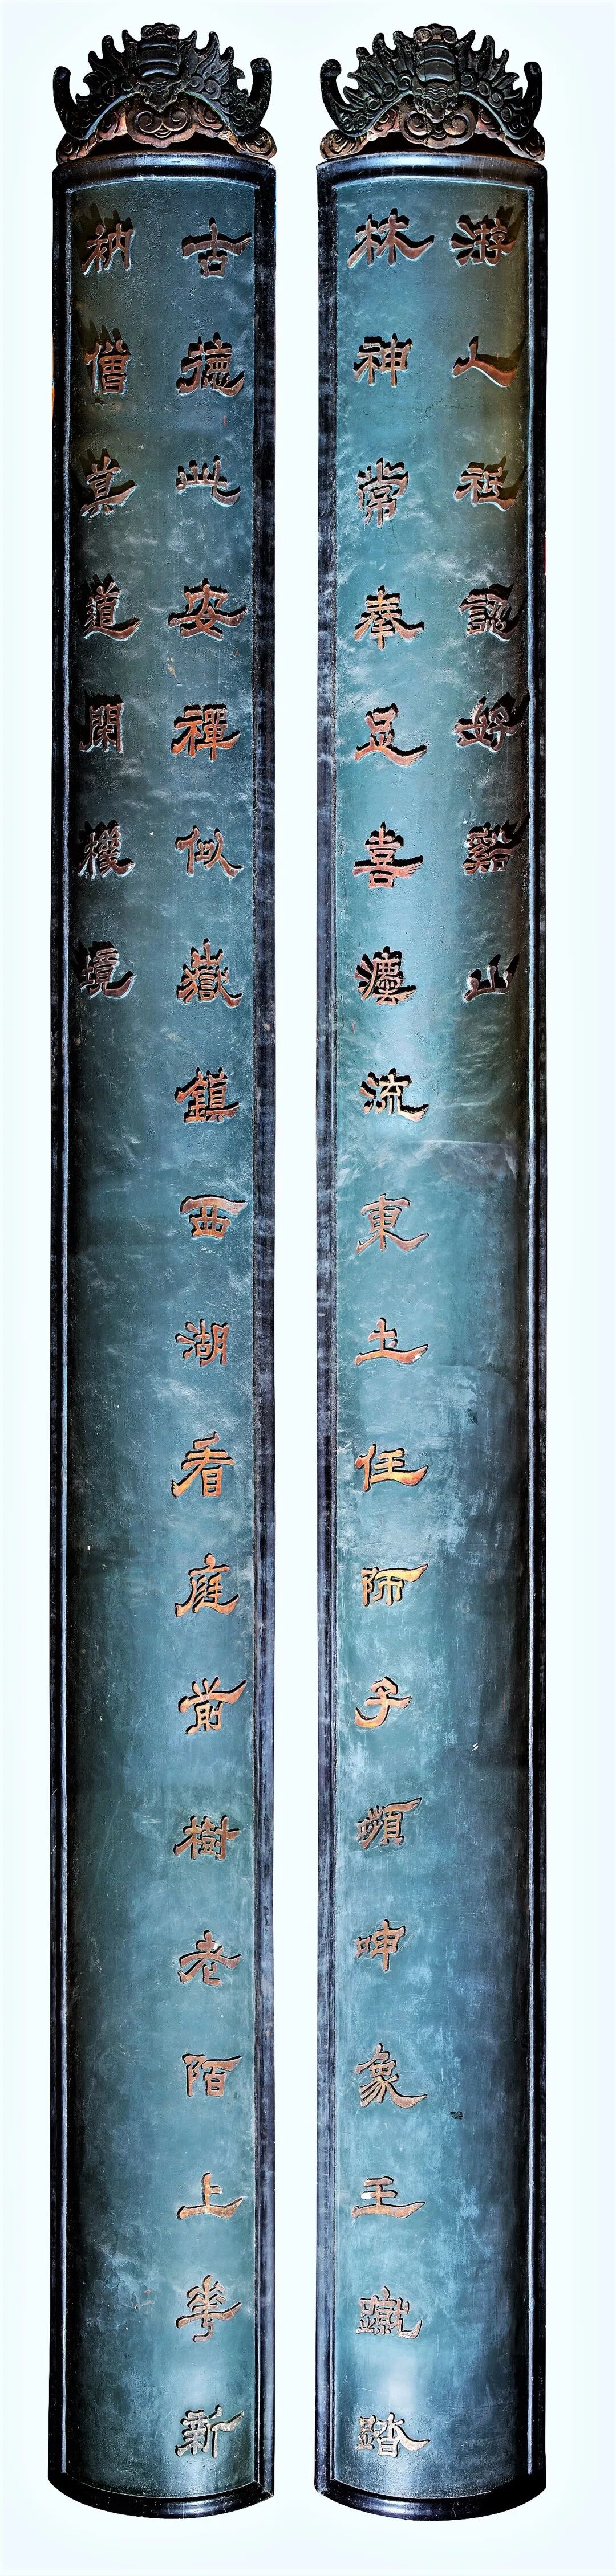 林神常奉足喜灋流東土任師子頻呻象王蹴踏
游人祇認好谿山
古德此安禪似嶽鎮西湖看庭前樹老陌上華新
衲僧莫道閑機境